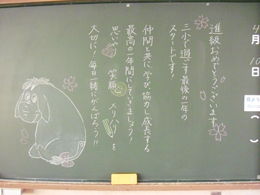 4月10日( )
進級おめでとうございます。
三小で過ごす最後の一年の
スタートです。
仲間と共に学び、協力し成長する
最高の一年間にしていきましょう!
思いやり 笑顔 メリハリを
大切に!毎日一緒にがんばろう!!